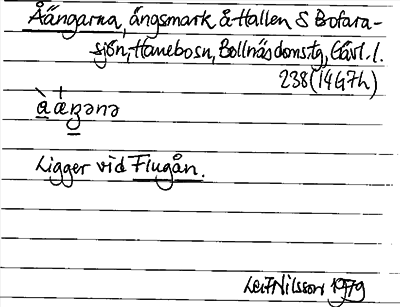 Åängarna, ängsmark å Hallen S Bofara-
sjön, Hanebosn, Bollnäs domstg, Gävl. l.
238 (14G7h)
å̀ ǽŋənə
Ligger vid Flugån.
Leif Nilsson 1979